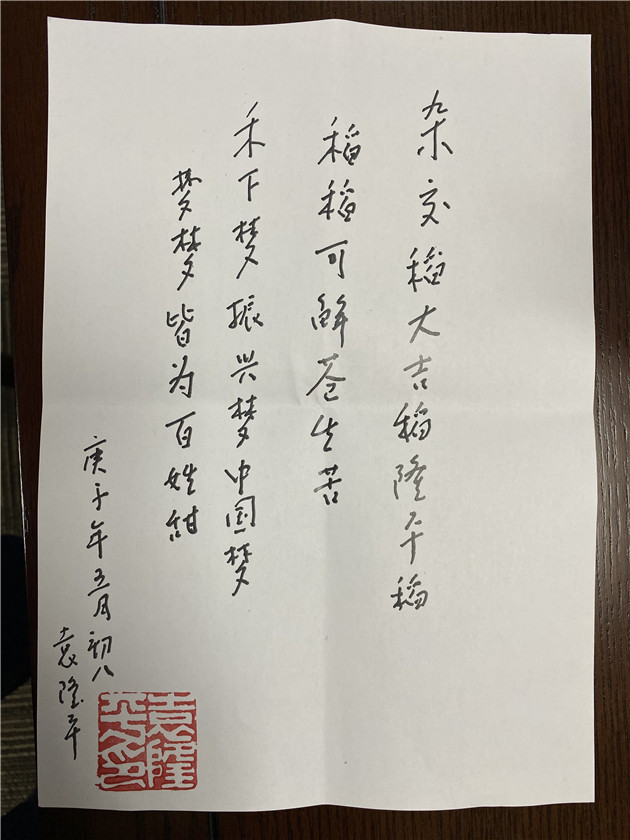 杂交稻大吉稻隆平稻
稻稻可解苍生苦
禾下梦振兴梦中国梦
梦梦皆为百姓甜
庚子年五月初八
袁隆平